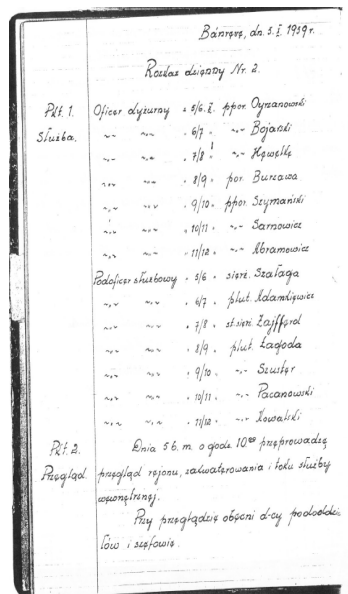 Bánréve, dn. 5. I. 1939 r.
Rozkaz dzienny Nr. 2.
Pkt. 1. Oficer dyżurny " 5/6. I. ppor. Oyrzanowski
Służba. " " " 6/7 " " Bojarski
" " " 7/8 " " Hawełka
" " " 8/9 " por. Burzawa
" " " 9/10 " ppor. Szymański
" " " 10/11 " " Sarnowicz
" " " 11/12 " " Abramowicz
Podoficer służbowy " 5/6 " sierż. Szałaga
" " " 6/7 " plut. Adamkiewicz
" " " 7/8 " st. sierż. Zajfferd
" " " 8/9 " plut. Łagoda
" " " 9/10 " " Szuster
" " " 10/11 " " Pacanowski
" " " 11/12 " " Kowalski
Pkt. 2. Dnia 5 b. m. o godz. 10⁰⁰ przeprowadzę
Przegląd. przegląd rejonu, zakwaterowania i toku służby
wewnętrznej.
Przy przeglądzie obecni d-cy pododdzia-
łów i szefowie.